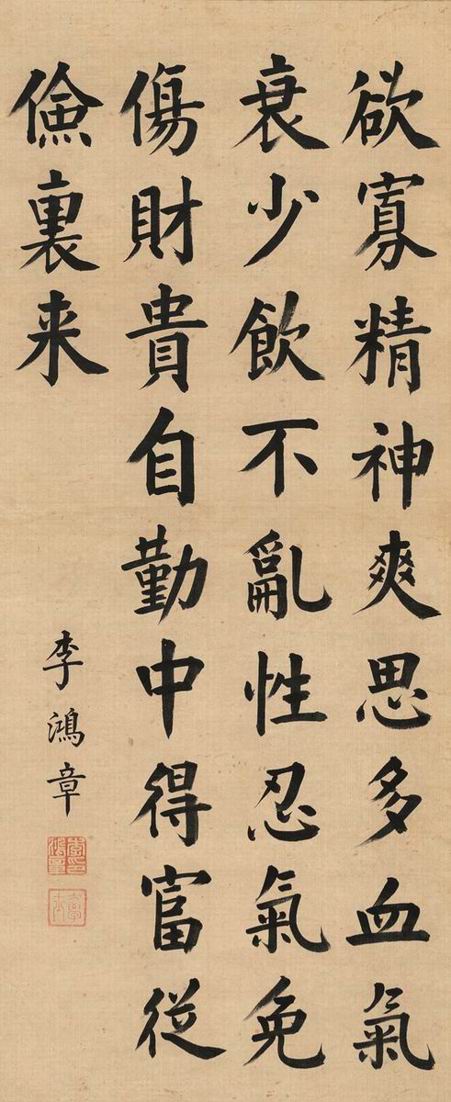 欲寡精神爽思多血氣
衰少飲不亂性忍氣免
傷財貴自勤中得富從
儉裏来
李鴻章